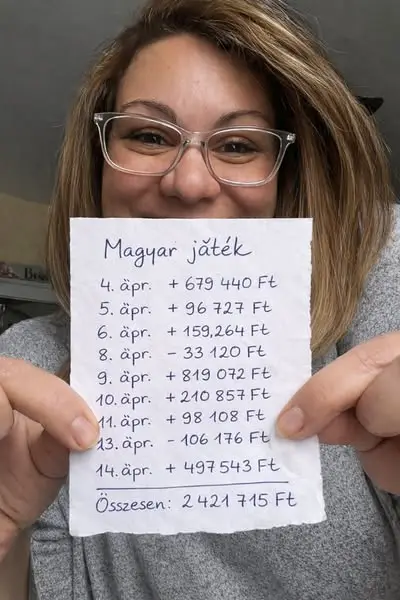 Magyar játék
4. äpr. + 679 440 Ft
5. äpr. + 96 727 Ft
6. äpr. + 159,264 Ft
8. äpr. - 33 120 Ft
9. äpr. + 819 072 Ft
10. äpr. + 210 857 Ft
11. äpr. + 98 108 Ft
13. äpr. - 106 176 Ft
14. äpr. + 497 543 Ft
Összesen: 2 421 715 Ft